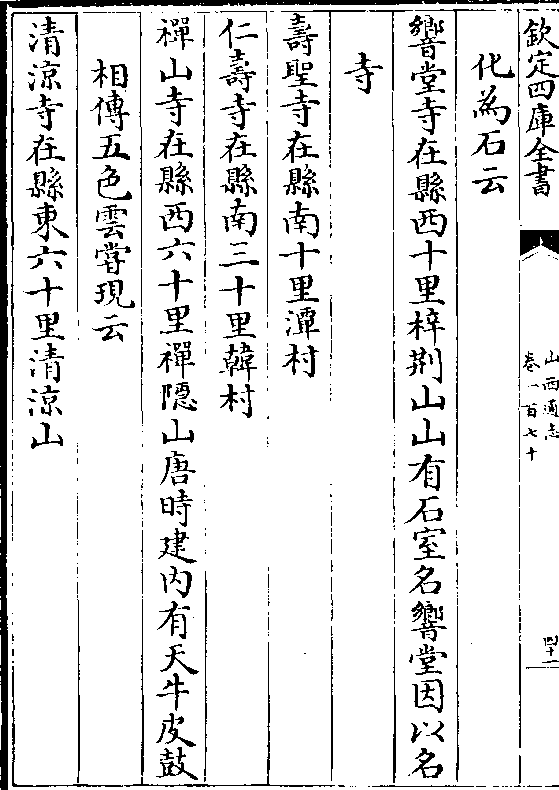 欽定四庫全書
山西通志
卷一百七十
四十一
化為石云
響堂寺在縣西十里梓荆山山有石室名響堂因以名
寺
壽聖寺在縣南十里潭村
仁壽寺在縣南三十里韓村
禪山寺在縣西六十里禪隱山唐時建内有天牛皮鼓
相傳五色雲嘗現云
清涼寺在縣東六十里清涼山